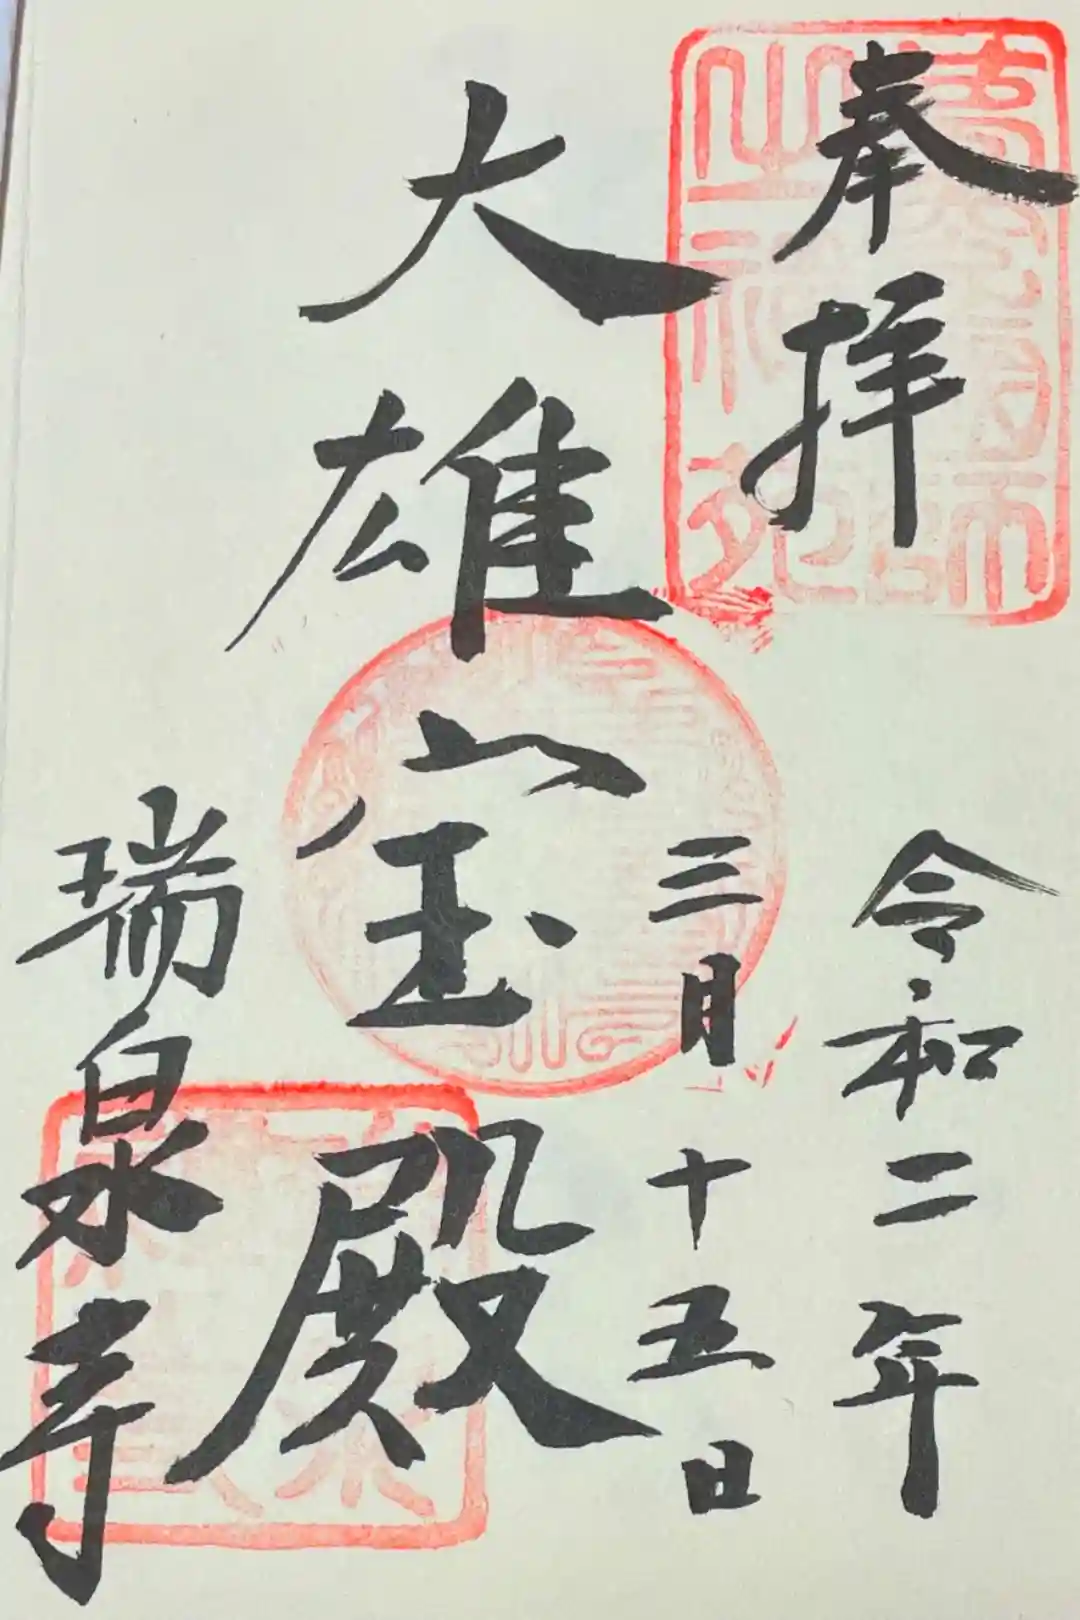 奉拝
令和二年
三月十五日
大雄宝殿
瑞泉寺